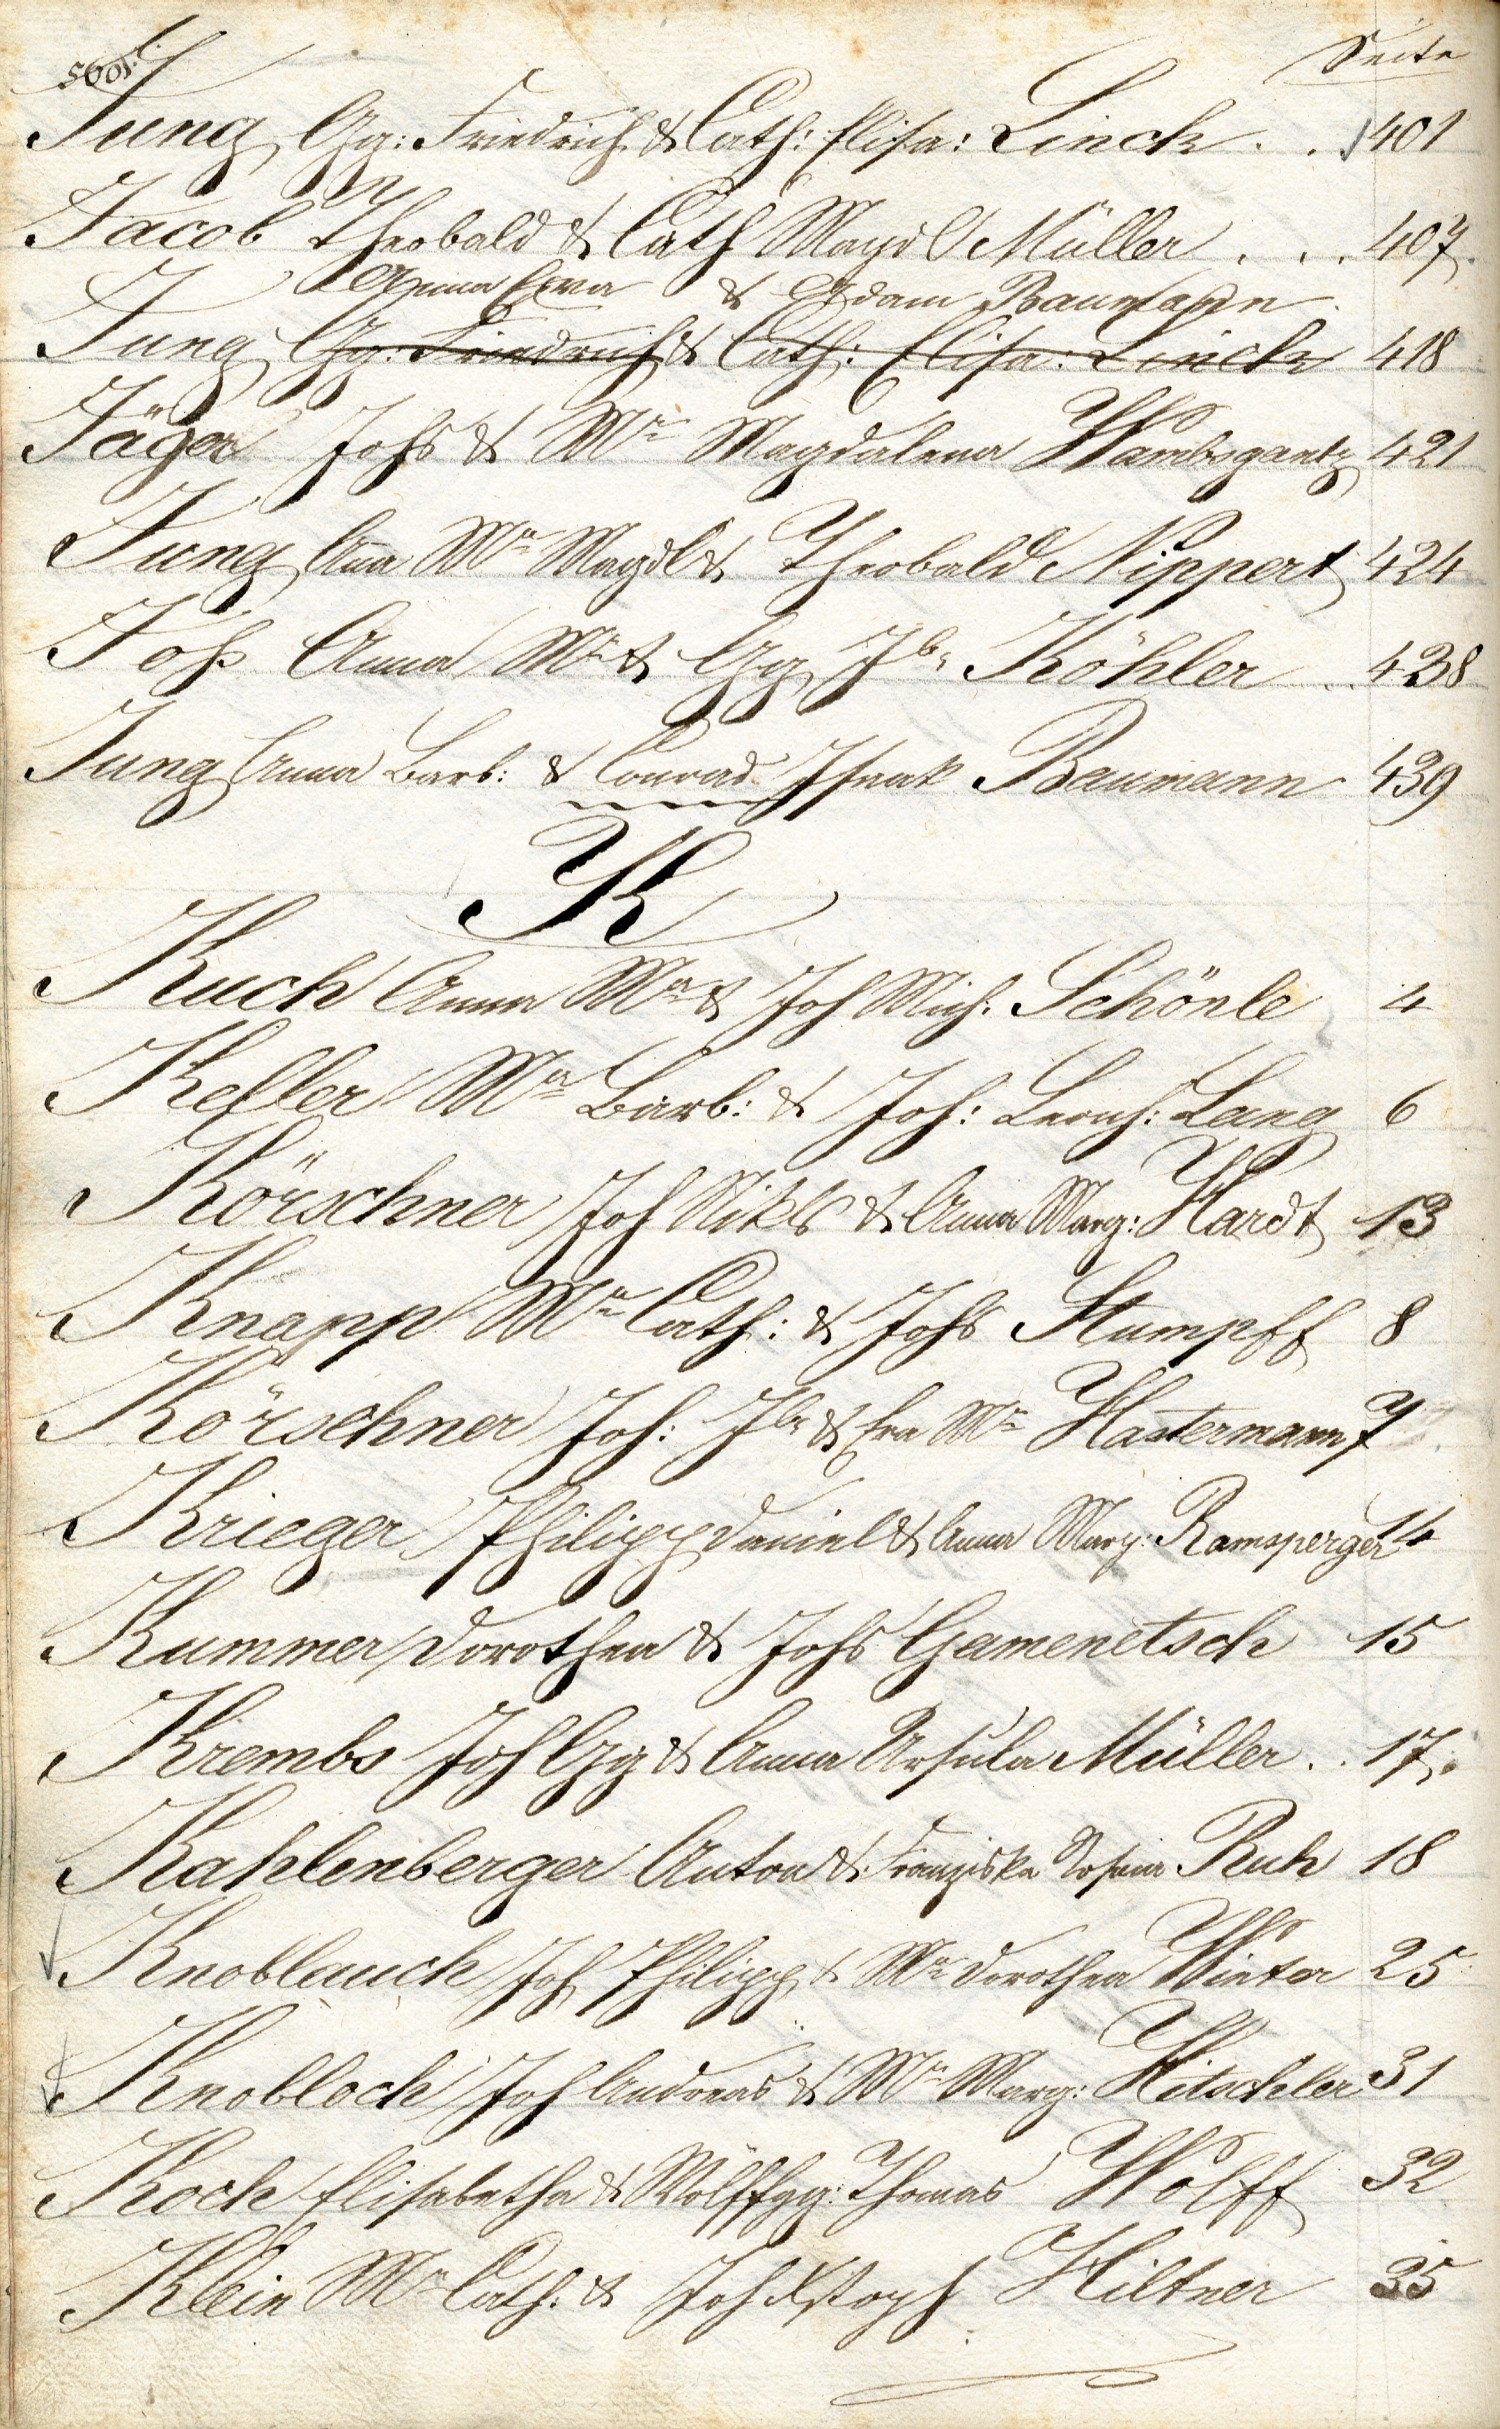 Seite
Jung Gg: Friedrich & Cath: Elisa: Linck . . 401
Jacob Theobald & Cath Magdl Müller . . . 407.
Anna Eva & Adam Baumann
Jung Gg: Friedrich & Cath: Elisa: Linck 418
Jäger Johs & Mra Magdalena Wambsgantz 421
Jung Ana Mra Magdl & Theobald Nippert 424
Joß Anna Mra & Gg Jb: Köhler . . 438
Jung Anna Barb: & Conrad Isaak Baumann 439
K
Kuch Anna Mra & Joh Mich: Schönle 4
Keller Mra Barb: & Joh: Leonh: Lang 6
Körschner Joh Nikls & Anna Marg: Hardt 13
Knapp Mra Cath: & Johs Stumpff 8
Körschner Joh: Jb: & Eva Mra Hastermann 7
Krieger Philipp Daniel & Anna Marg: Ramsperger 14
Kummer Dorothea & Johs Gamenetsch 15
Krembs Joh Gg & Anna Ursula Müller . . 17.
Kahlenberger Anton & Franziska Rosina Ruh 18
Knoblauch Joh Philipp & Mra Dorothea Winter 25
Knobloch Joh Andreas & Mra Marg: Hitschler 31
Koch Elisabetha & Wolffgg: Thomas Wolff 32
Klein Mra Cath: & Joh Xstoph Hiltner 35